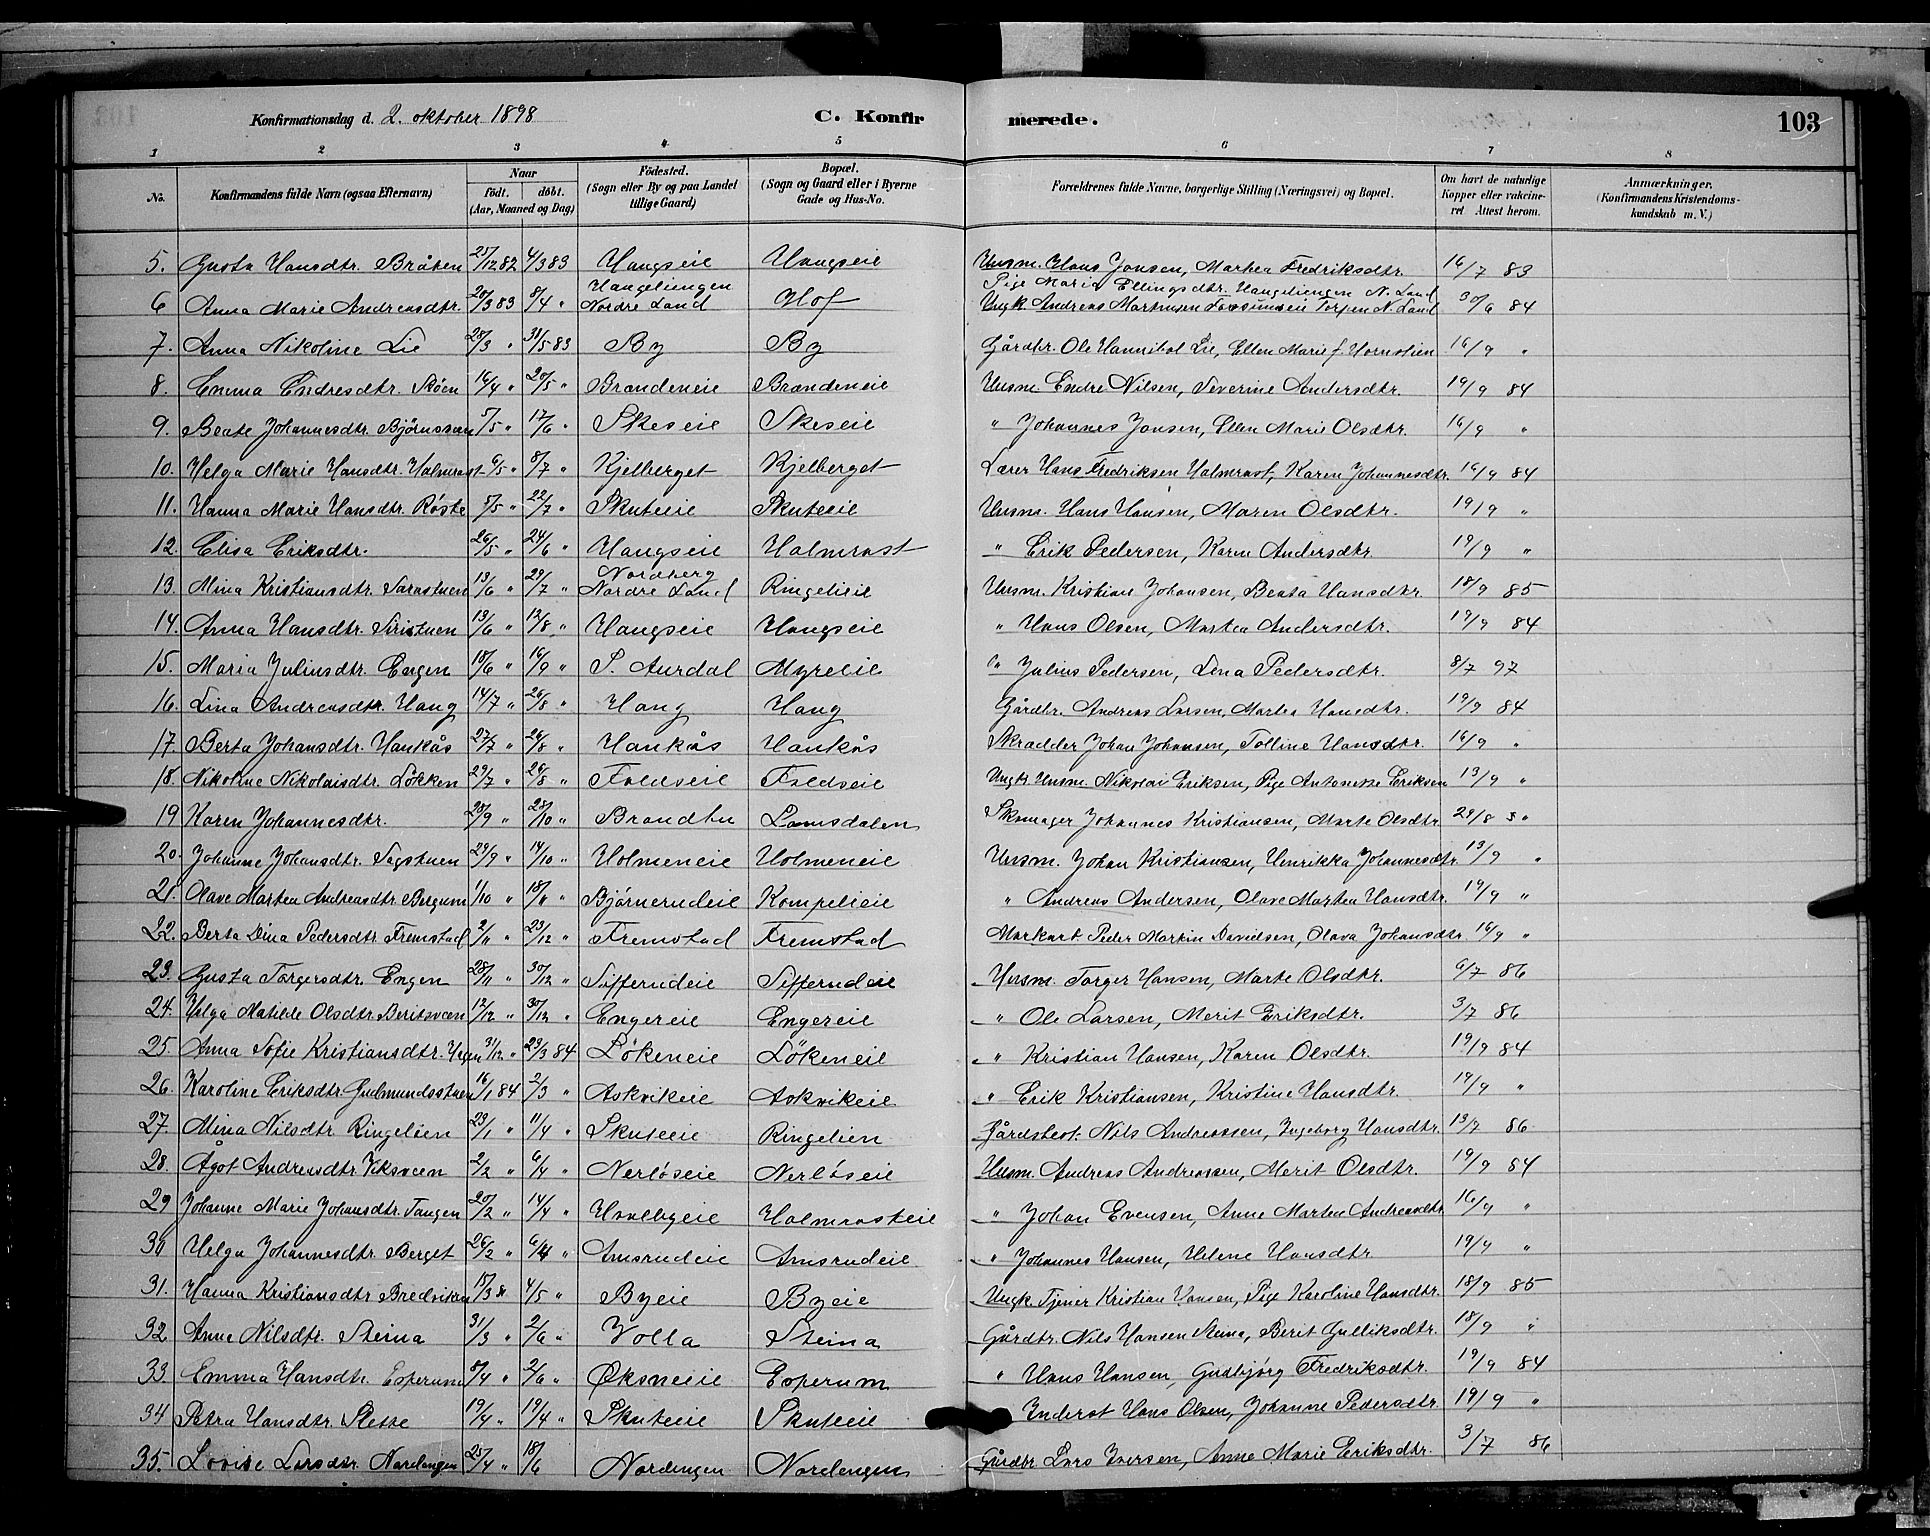 Konfirmationsdag d. 2. oktober 1898 C. Konfirmerede. 103
1 2 3 4 5 6 7 8
No. Konfirmandens fulde Navn (ogsaa Efternavn) Naar født. døbt. (Aar, Maaned og Dag) Fødested. (Sogn eller By og paa Landet tillige Gaard) Bopæl. (Sogn og Gaard eller i Byerne Gade og Hus-No. Forældrenes fulde Navne, borgerlige Stilling (Næringsvei) og Bopæl. Om havt de naturlige Kopper eller vakcineret Attest herom. Anmærkninger. (Konfirmandens Kristendomskundskab m. V.)
5. Gusta Hansdtr. Bråten 25/12 82 4/3 83 Haugseie Haugseie Husm. Hans Jonsen, Martea Fredriksdtr. 16/7 83
6 Anna Marie Andreasdtr. 20/3 83 8/4 " Haugeliengen Nordre Land Hof Pige Maria Ellingsdtr. Haugeliengen N. Land Ungk. Andreas Martinsen Torpen N. Land 30/6 84
7. Anna Nikoline Lie 28/3 " 31/5 83 By By Gårdbr. Ole Hannibal Lie, Ellen Marie f. Hornslien 16/9 "
8. Emma Endresdtr. Skøen 16/4 " 20/5 " Brandeneie Brandeneie Husm. Endre Nilsen, Severine Andersdtr. 19/9 84
9. Beate Johannesdtr. Bjørnsveen 5/5 " 17/6 " Skeseie Skeseie " Johannes Jonsen, Ellen Marie Olsdtr. 16/9 "
10. Helga Marie Hansdtr. Halmrast 6/5 " 8/7 " Kjelberget Kjelberget Lærer Hans Fredriksen Halmrast, Karen Johannesdtr. 16/9 84
11. Hanna Marie Hansdtr. Røste 5/5 " 22/7 " Skuteeie Skuteeie Husm. Hans Hansen, Maren Olsdtr. 19/9 "
12. Elisa Eriksdtr. 26/5 " 24/6 " Haugseie Halmrast " Erik Pedersen, Karen Andersdtr. 19/9 "
13. Mina Kristiansdtr. Sarastuen 13/6 " 29/7 " Nordberg Nordre Land Ringelieie Husm. Kristian Johansen, Beata Hansdtr. 18/9 85
14. Anna Hansdtr. Siristuen 13/6 " 12/8 " Haugseie Haugseie " Hans Olsen, Martea Andersdtr. 19/9 84
15. Maria Juliusdtr. Engen 18/6 " 16/9 " S. Aurdal Myreeie " Julius Pedersen, Lena Pedersdtr. 8/7 97
16. Lina Andreasdtr. Haug 14/7 " 26/8 " Haug Haug Gårdbr. Andreas Larsen, Martea Hansdtr. 19/9 84
17. Berta Johansdtr. Haukås 27/7 " 26/8 " Haukås Haukås Skrædder Johan Johansen, Tolline Hansdtr. 16/9 "
18. Nikoline Nikolaisdtr. Løkken 29/7 " 26/8 " Fredseie Fredseie Ungk. Husm. Nikolai Eriksen, Pige Antonette Eriksen 13/9 "
19 Karen Johannesdtr. 28/9 " 28/10 " Brandbu Lomsdalen Skomager Johannes Kristiansen, Marte Olsdtr. 29/8 "
20. Johanne Johansdtr. Sagstuen 29/9 " 14/10 " Holmeneie Holmeneie Husm. Johan Kristiansen, Henrikka Johannesdtr. 13/9 "
21. Olave Martea Andreasdtr. Bergum 1/10 " 18/11 " Bjørnerudeie Kompelieie " Andreas Andersen, Olave Martea Hansdtr. 19/9 "
22. Berta Dina Pedersdtr Fremstad 2/11 " 23/12 " Fremstad Fremstad Markart. Peder Martin Davidsen, Olava Johansdtr. 16/9 "
23. Gusta Torgersdtr. Engen 28/11 " 30/12 " Sifferudeie Sifferudeie Husm. Torger Hansen, Marte Olsdtr. 6/7 86
24. Helga Matilde Olsdtr Beritsveen 12/12 " 30/12 " Engereie Engereie " Ole Larsen, Merit Eriksdtr. 3/7 86
25. Anna Sofie Kristiansdtr. Hagen 31/12 " 23/3 84 Løkeneie Løkeneie " Kristian Hansen, Karen Olsdtr. 19/9 84
26. Karoline Eriksdtr. Gudmundsstuen 16/1 84 2/3 " Askvikeie Askvikeie " Erik Kristiansen, Kristine Hansdtr. 19/9 "
27. Mina Nilsdtr Ringelien 23/1 " 11/4 " Skuteeie Ringelien Gårdsbest. Nils Andreassen, Ingeborg Hansdtr. 13/7 86
28. Ågot Andreasdtr. Viksveen 2/2 " 6/4 " Nerløseie Nerløseie Husm. Andreas Andreassen, Merit Olsdtr. 19/9 84
29 Johanne Marie Johansdtr. Taugen 20/2 " 14/4 " Hvalbyeie Halmrasteie " Johan Evensen, Anne Martea Andreasdtr. 16/9 "
30 Helga Johannesdtr. Berget 26/2 " 6/4 " Amsrudeie Amsrudeie " Johannes Hansen, Helene Hansdtr. 19/9 "
31. Hanna Kristiansdtr Bredviken 15/3 " 4/5 " Byeie Byeie Ungk. Tjener Kristian Hansen, Pige Karoline Hansdtr. 18/9 85
32. Anne Nilsdtr. Steina 31/3 " 2/6 " Volla Steina Gårdbr. Nils Hansen Steina, Berit Gulliksdtr. 18/9 "
33. Emma Hansdtr. Esperum 5/4 " 2/6 " Øksneeie Esperum " Hans Hansen, Gudbjørg Fredriksdtr. 19/9 84
34 Petra Hansdtr. Slette 19/4 " 19/4 " Skuteeie Skuteeie Inderst Hans Olsen, Johanne Pedersdtr. 19/9 "
35. Lovise Larsdtr. Nordengen 25/4 " 18/6 Nordengen Nordengen Gårdbr. Lars Iversen, Anne Marie Eriksdtr. 3/7 86